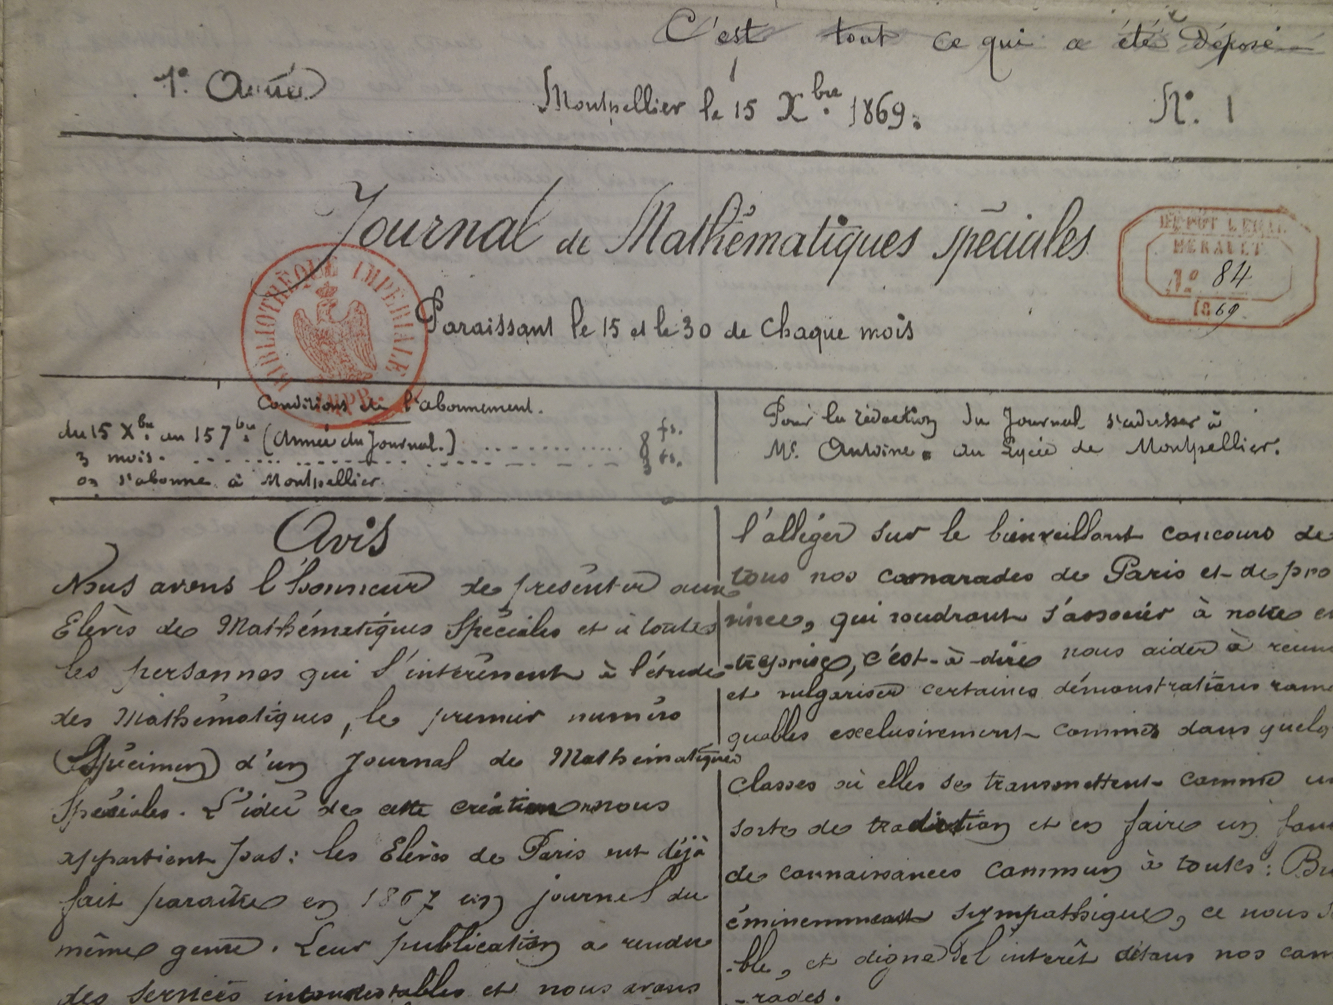 C'est tout ce qui a été déposé
1º Année
Montpellier le 15 Xbre 1869.
Nº. 1
Journal de Mathématiques spéciales
DÉPÔT LÉGAL
HÉRAULT
Nº 84
1869
BIBLIOTHÈQUE IMPÉRIALE
IMPR.
Paraissant le 15 et le 30 de chaque mois
Conditions de l'abonnement.
du 15 Xbre au 15 7bre (Année du Journal.) 8 fs.
3 mois. 3 fs.
on s'abonne à Montpellier
Pour la rédaction du Journal s'adresser à
Mr. Antoine. au Lycée de Montpellier.
Avis
Nous avons l'honneur de présenter aux
Elèves de Mathématiques Spéciales et à toutes
les personnes qui s'intéressent à l'étude
des Mathématiques, le premier numéro
(Spécimen) d'un Journal de Mathématiques
Spéciales. L'idée de cette création nous
appartient pas: les Elèves de Paris ont déjà
fait paraître en 1867 un journal du
même genre. Leur publication a rendu
des services incontestables et nous avons
l'alléger sur le bienveillant concours de
tous nos camarades de Paris et de pro
vince, qui voudront s'associer à notre en
treprise, c'est-à-dire nous aider à réun
et vulgariser certaines démonstrations remar
quables exclusivement connues dans quelq
classes où elles se transmettent comme un
sorte de tradition et en faire un fon
de connaissances commun à toutes: Bu
éminemment sympathique, ce nous s
ble, et digne de l'intérêt de tous nos cam
rades.